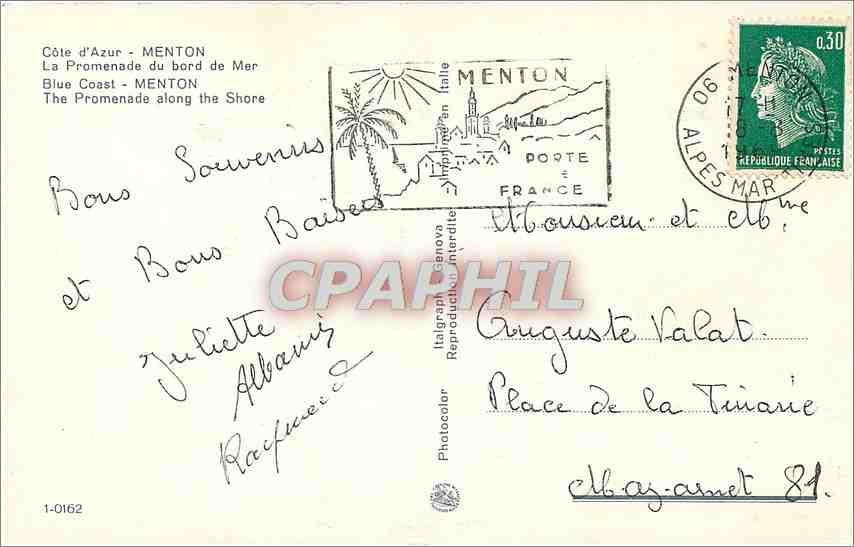 Côte d'Azur - MENTON
La Promenade du bord de Mer
Blue Coast - MENTON
The Promenade along the Shore
Bons Souvenirs
et Bons Baisers
Juliette
Albanie
Raymond
1-0162
Photocolor
Italgraph - Genova
Reproduction interdite
Imprimé en Italie
MENTON
PORTE
FRANCE
06 MENTON
17 H
8-8
ALPES MAR
0,30
POSTES
REPUBLIQUE FRANÇAISE
CPARPHIL
Monsieur et Mme
Auguste Valat.
Place de la
Mazamet 81.